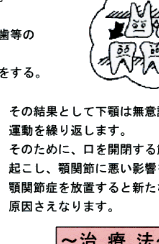 歯等の
をする。
その結果として下顎は無意
運動を繰り返します。
そのために、口を開閉する
起こし、顎関節に悪い影響
顎関節症を放置すると新た
原因さえなります。
～治 療 法